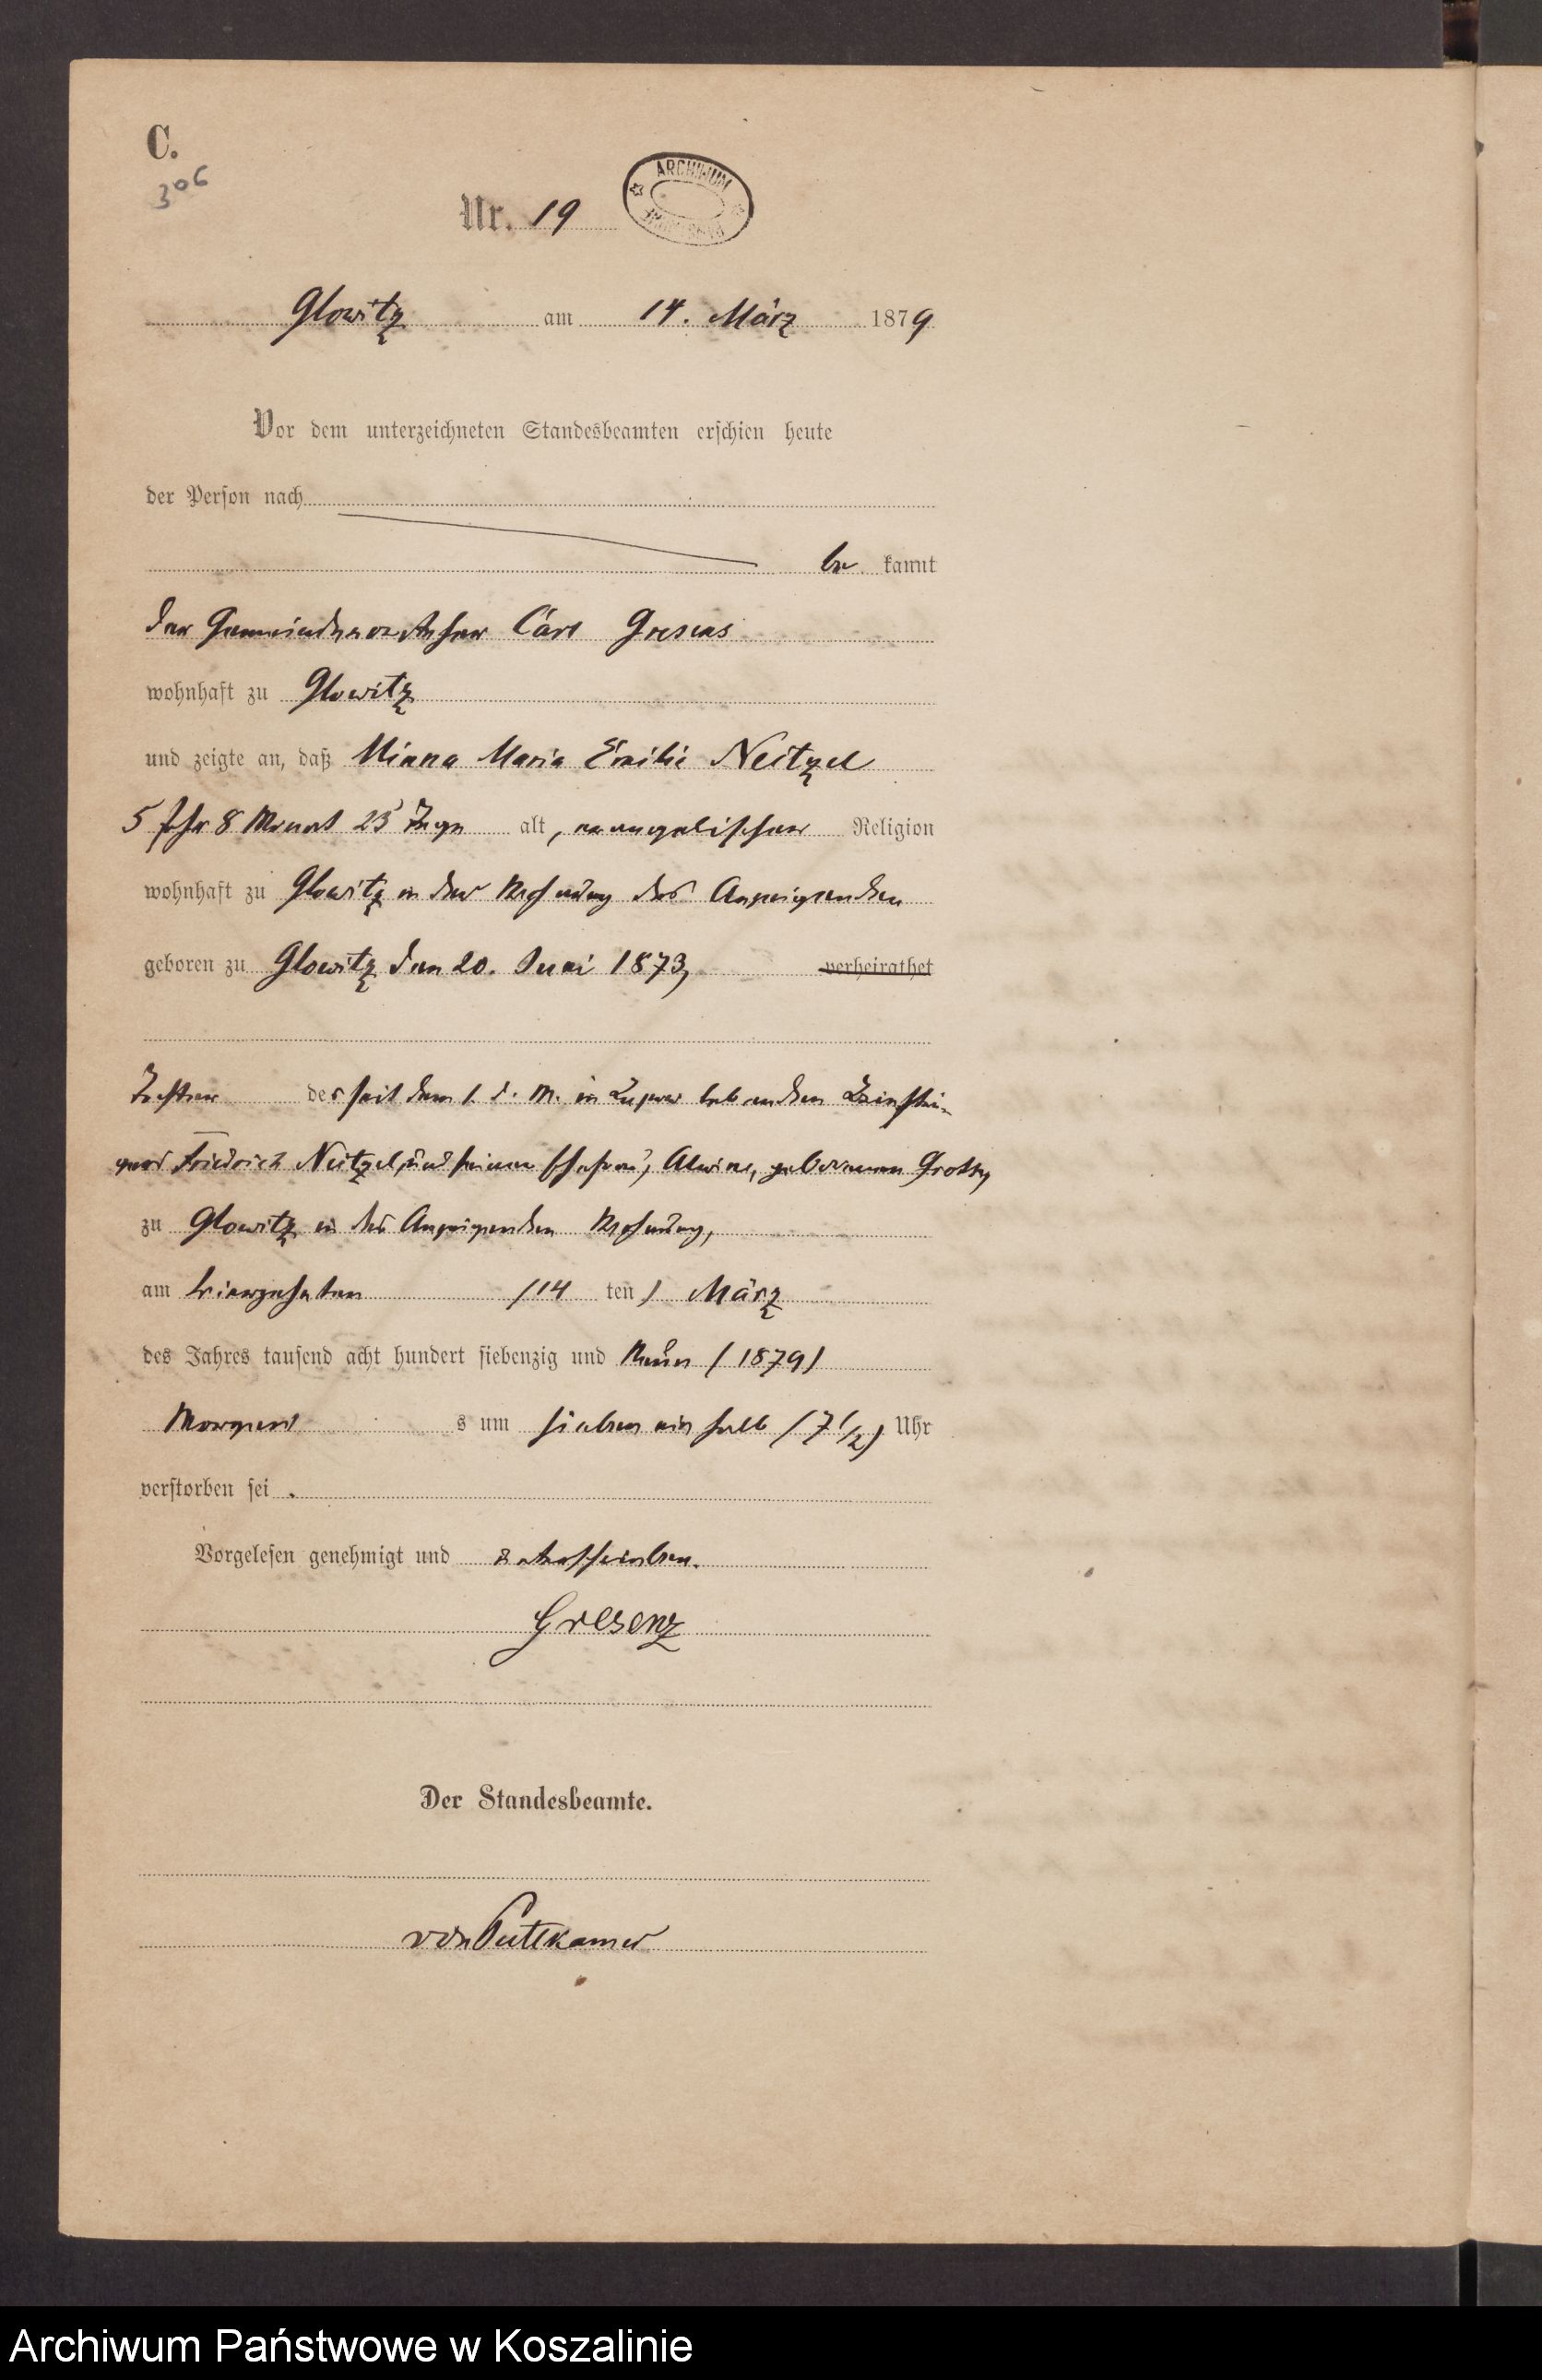 C.
306
Nr. 19
ARCHIWUM
Glowitz am 14. März 1879
Vor dem unterzeichneten Standesbeamten erschien heute
der Person nach
be kannt
der Gemeindevorsteher Carl
wohnhaft zu Glowitz
und zeigte an, daß Minna Maria Emilie Neitzel
5 Jahr 8 Monat 23 Tage alt, evangelischer Religion
wohnhaft zu Glowitz in der Wohnung des Anzeigenden
geboren zu Glowitz den 20. Juni 1873, verheirathet
Tochter des seit dem 1. d. M. in lebenden
Friedrich Neitzel und seiner Ehefrau, Alwine, geborenen
zu Glowitz in des Anzeigenden Wohnung,
am vierzehnten (14 ten) März
des Jahres tausend acht hundert siebenzig und Neun (1879)
Morgen s um sieben ein halb (7 1/2) Uhr
verstorben sei .
Vorgelesen genehmigt und unterschrieben.
Gresenz
Der Standesbeamte.
von Puttkamer
Archiwum Państwowe w Koszalinie